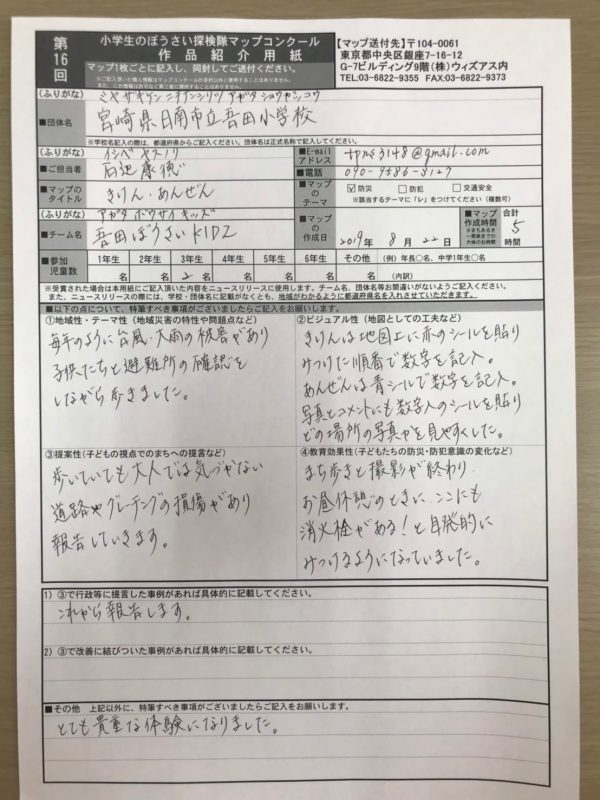 第16回
小学生のぼうさい探検隊マップコンクール
作品紹介用紙
マップ1枚ごとに記入し、同封してご送付ください。
※ご記入頂いた個人情報はマップコンクールの目的以外に使用することはありません。
【マップ送付先】〒104-0061
東京都中央区銀座7-16-12
G-7ビルディング9階(株)ウィズアス内
TEL:03-6822-9355 FAX:03-6822-9373
(ふりがな) ミヤザキケンニチナンシリツ アガタショウガッコウ
■団体名 宮崎県日南市立吾田小学校
※学校名記入の際は、都道府県からご記入ください。団体名は正式名称で記入してください。
(ふりがな) イシベヤスノリ
■ご担当者 石辺康徳
■E-mailアドレス
■電話
■マップのタイトル きけん・あんぜん
■マップのテーマ ☑防災 □防犯 □交通安全
※該当するテーマに「レ」をつけてください(複数可)
(ふりがな) アガタボウサイキッズ
■チーム名 吾田ぼうさいKIDZ
■マップの作成日 2019年 8月 22日
■マップ作成時間 合計 5 時間
※まちあるき～発表までの大体のお時間
■参加児童数 1年生 2年生 3年生 4年生 5年生 6年生 その他 (例)年長〇名、中学1年生〇名
名 名 2名 名 名 名 名 (内訳)
※受賞された場合は本用紙にご記入頂いた内容をニュースリリースに使用します。チーム名、団体名等お間違いがないようご記入ください。
また、ニュースリリースの際には、学校・団体名に記載がなくとも、地域がわかるように都道府県名を入れさせていただきます。
■以下の点について、特筆すべき事項がございましたらご記入をお願いします。
①地域性・テーマ性(地域災害の特性や問題点など)
毎年のように台風・大雨の被害があり
子供たちと避難所の確認を
しながら歩きました。
②ビジュアル性(地図としての工夫など)
きけんは地図上に赤のシールを貼り
みつけた順番で数字を記入。
あんぜんは青シールで数字を記入。
写真とコメントにも数字入のシールを貼り
どの場所の写真かを見やすくした。
③提案性(子どもの視点でのまちへの提言など)
歩いていても大人では気づかない
道路やグレーチングの損傷があり
報告していきます。
④教育効果性(子どもたちの防災・防犯意識の変化など)
まち歩きと撮影が終わり
お昼休憩のときに、ここにも
消火栓がある!と自発的に
みつけるようになっていました。
1)③で行政等に提言した事例があれば具体的に記載してください。
これから報告します。
2)③で改善に結びついた事例があれば具体的に記載してください。
■その他 上記以外に、特筆すべき事項がございましたらご記入をお願いします。
とても貴重な体験になりました。